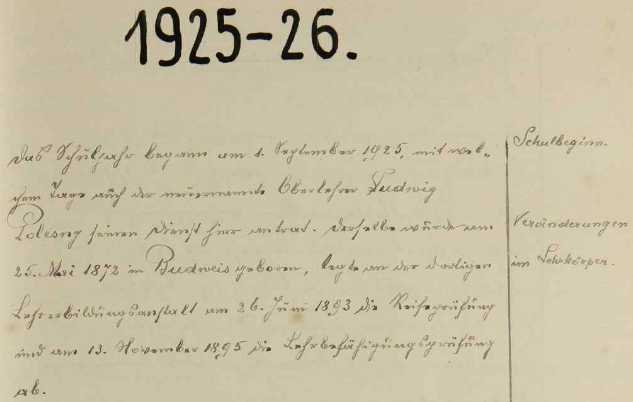 1925-26.
Das Schuljahr begann am 1. September 1925, mit wel-
chem Tage auch der neuernannte Oberlehrer Ludwig
Polesny seinen Dienst hier antrat. Derselbe wurde am
25. Mai 1872 in Budweis geboren, legte an der dortigen
Lehrerbildungsanstalt am 26. Juni 1893 die Reifeprüfung
und am 13. November 1895 die Lehrbefähigungsprüfung
ab.
Schulbeginn.
Veränderungen
im Lehrkörper.